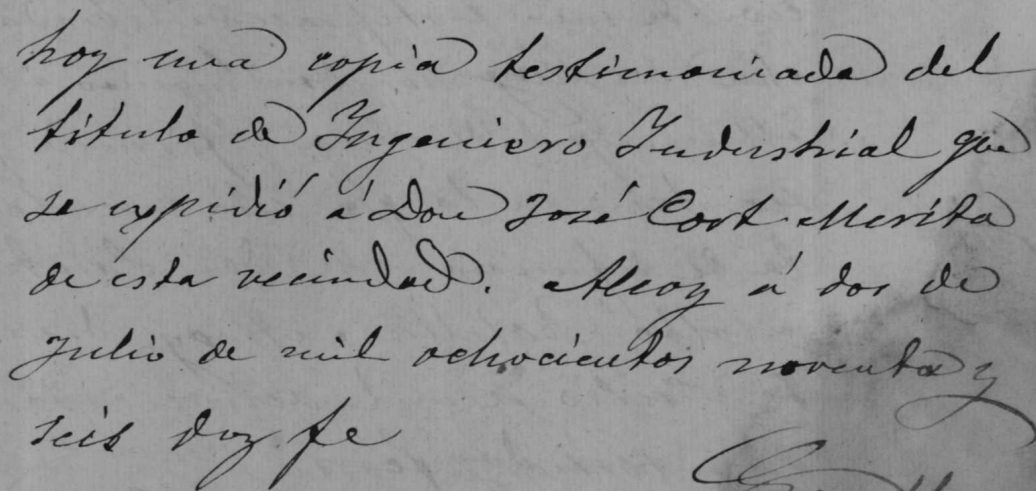 hoy una copia testimoniada del
titulo de Ingeniero Industrial que
se expidió á Don José Cort Merita
de esta vecindad. Alcoy á dos de
Julio de mil ochocientos noventa y
seis doy fe